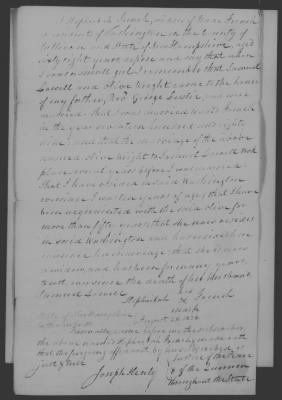 I Hephzibah French, widow of Isaac French
a resident of Washington in the County of
Sullivan and State of New Hampshire, aged
sixty eight years depose and say that when
I was a small girl I remember that Samuel
Lowell and Olive Wright came to the house
of my father, Rev. George Leslie, and were
married. That I was married to said French
in the year seventeen hundred and eighty
and I think that the marriage of the above
named Olive Wright to Samuel Lowell took
place several years before I was married
That I have resided in said Washington
ever since I was ten years of age, that I have
been acquainted with the said Olive for
more than fifty years, that she now resides
in said Washington and has resided there
ever since her marriage; that she is now
a widow and has been for many years
past, ever since the death of her husband
Samuel Lowell
her
Hephzibah X French
mark
State of New Hampshire
Sullivan ss. August 28, 1838
Personally came before me the subscriber,
the above named Hephzibah French, made oath
that the foregoing affidavit by her subscribed is
just & true
Joseph Healy Justice of the Peace
& of the Quorum
throughout the State